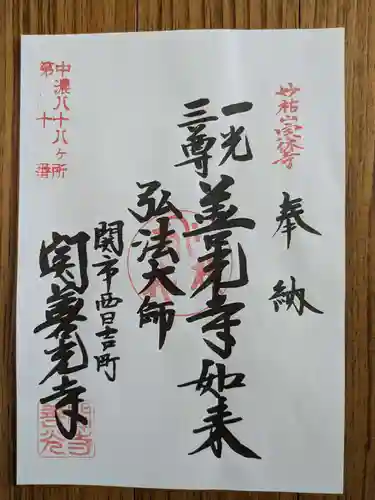 妙祐山宗休寺
奉納
一光三尊
善光寺如来
弘法大師
関市西日吉町
関善光寺
中濃八十八ヶ所
第十番